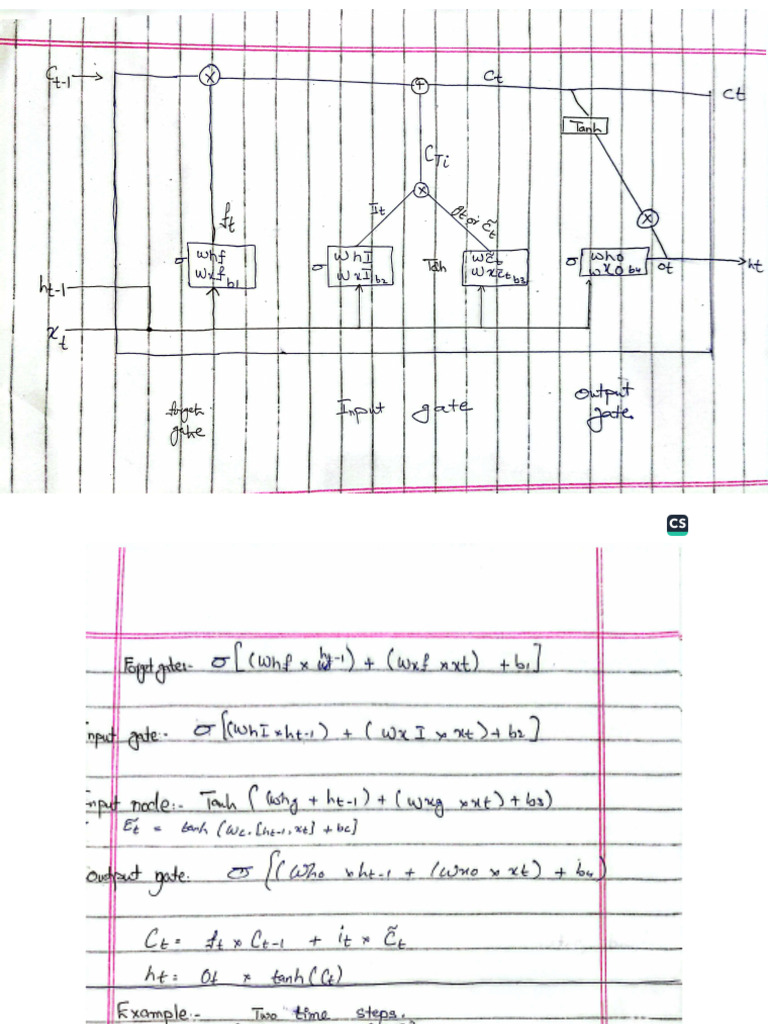 Ct-1
Ct
Ct
Tanh
CTi
It
gt or C̃t
ft
σ
whf
wxf b1
σ
whI
wxI b2
Tah
wc̃t
wxc̃t b3
σ
who
wxo b4
ot
ht
ht-1
xt
forget gate
Input gate
output gate
CS
Forget gate:- σ[(Whf × ht-1) + (Wxf × xt) + b1]
nput gate:- σ[(WhI × ht-1) + (WxI × xt) + b2]
nput node:- Tanh ((Whg + ht-1) + (Wxg × xt) + b3)
C̃t = tanh (Wc. [ht-1, xt] + bc]
output gate: σ[(Who × ht-1 + (Wxo × xt) + b4)
Ct = ft × Ct-1 + it × C̃t
ht = Ot × tanh(Ct)
Example:- Two time steps.